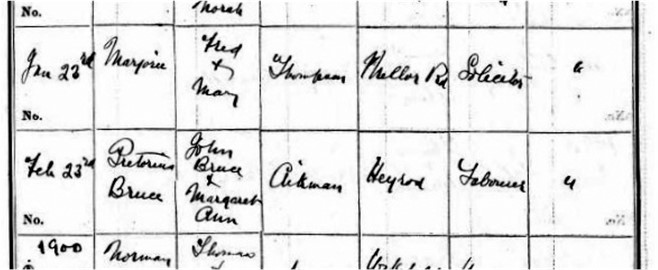 No. Norah
Jan 23rd Marjorie Fred & Mary Thompson Mellor Rd Solicitor "
No.
Feb 23rd Pretorius Bruce John Bruce & Margaret Ann Aikman Heyrod Labourer "
No.
1900 Norman Thomas